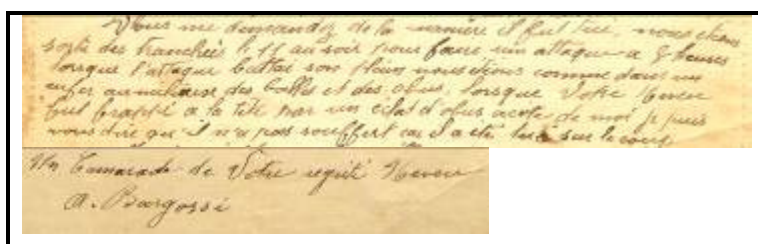 Vous me demandez de la manière il fut tué, nous étions
sorti des tranchées le 11 au soir pour faire une attaque a 8 heures
lorsque l'attaque battai son plein nous étions comme dans un
enfer au milieux des balles et des obus, lorsque Votre Neveu
fut frappé a la tête par un eclat d'obus a coté de moi je puis
vous dire qu'il n'a pas souffert car il a été tué sur le coup
Un Camarade de Votre regreté Neveu
A. Bargossi